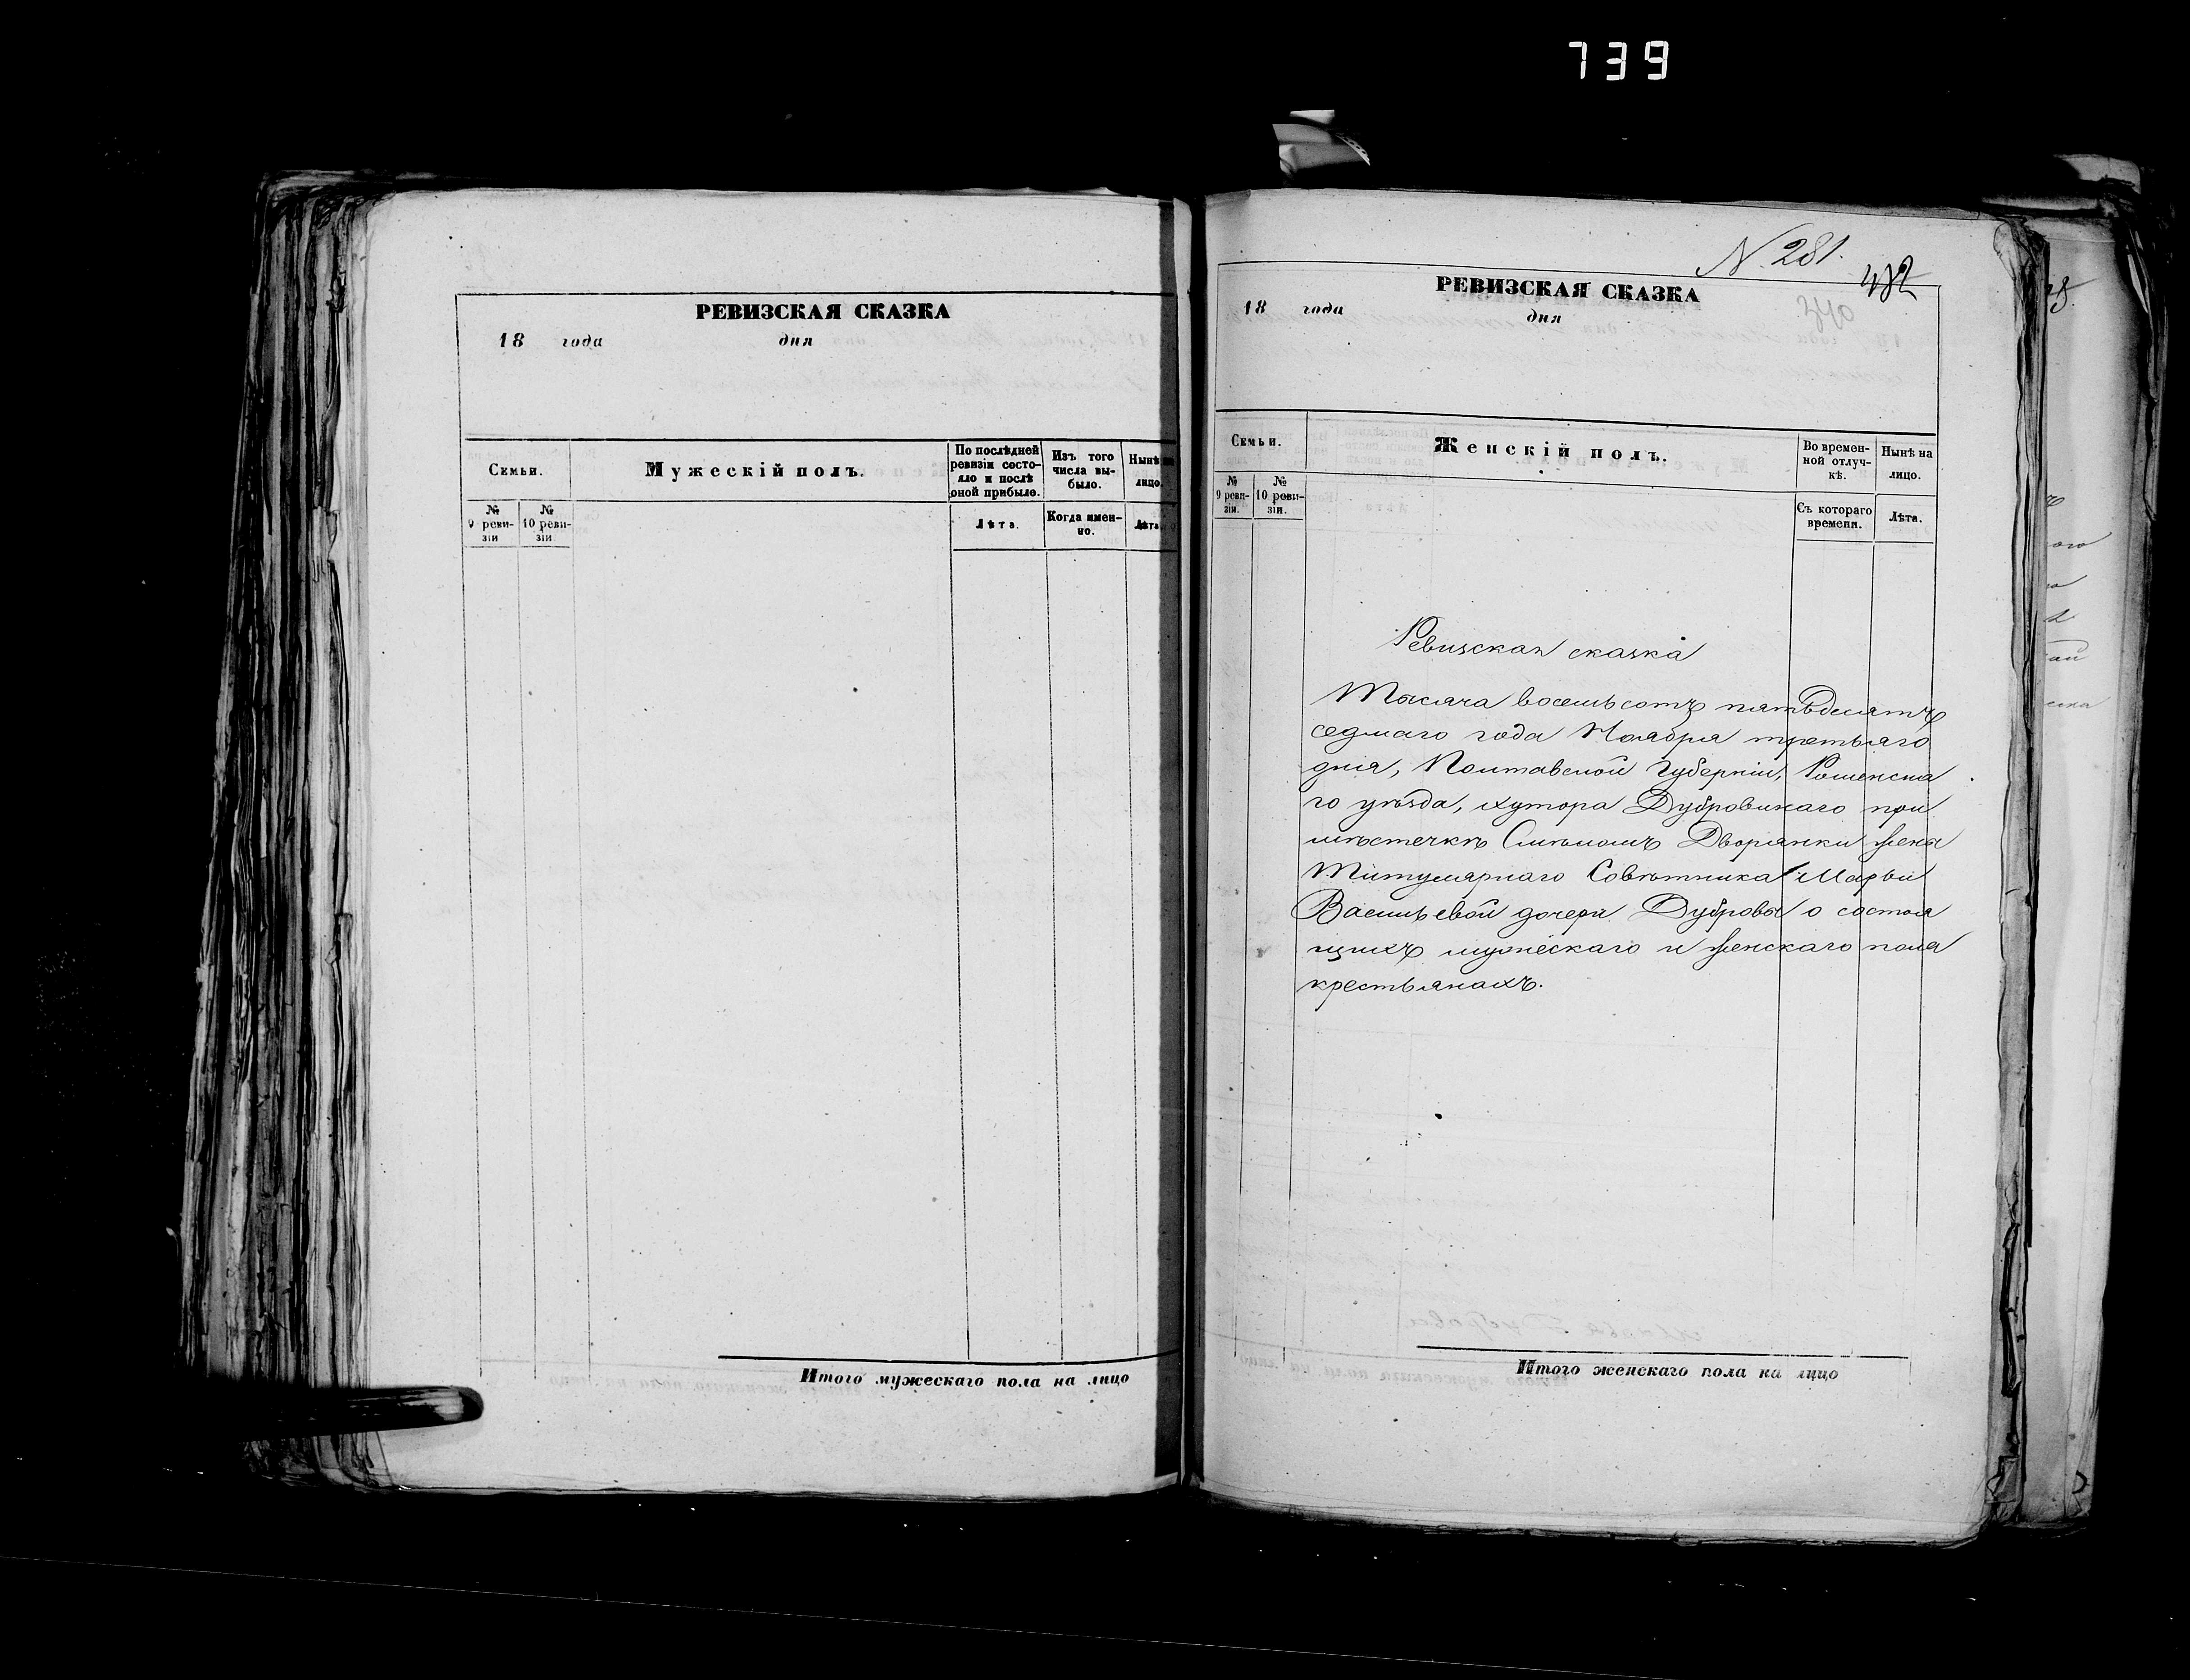 739
РЕВИЗСКАЯ СКАЗКА
18 года дня
Семьи.
Мужескій полъ.
По послѣдней ревизіи состояло и послѣ оной прибыло.
Изъ того числа выбыло.
Нынѣ на лицо.
№ 9 ревизіи
№ 10 ревизіи
Лѣта.
Когда именно.
Лѣта
Итого мужескаго пола на лицо
N. 281.
340
РЕВИЗСКАЯ СКАЗКА
18 года дня
Семьи.
Женскій полъ.
Во временной отлучкѣ.
Нынѣ на лицо.
№ 9 ревизіи.
№ 10 ревизіи.
Съ котораго времени.
Лѣта.
Ревизская сказка
Тысяча восемьсотъ пятьдесятъ
седмаго года Ноября третьяго
дня, Полтавской Губерніи, Роменска
го уѣзда, хутора Дубровинаго при
мѣстечкѣ Смѣломъ Дворянки жены
Титулярнаго Совѣтника Марьи
Васильевой дочери Дубровы о состоя
щихъ мужескаго и женскаго пола
крестьянахъ.
Итого женскаго пола на лицо